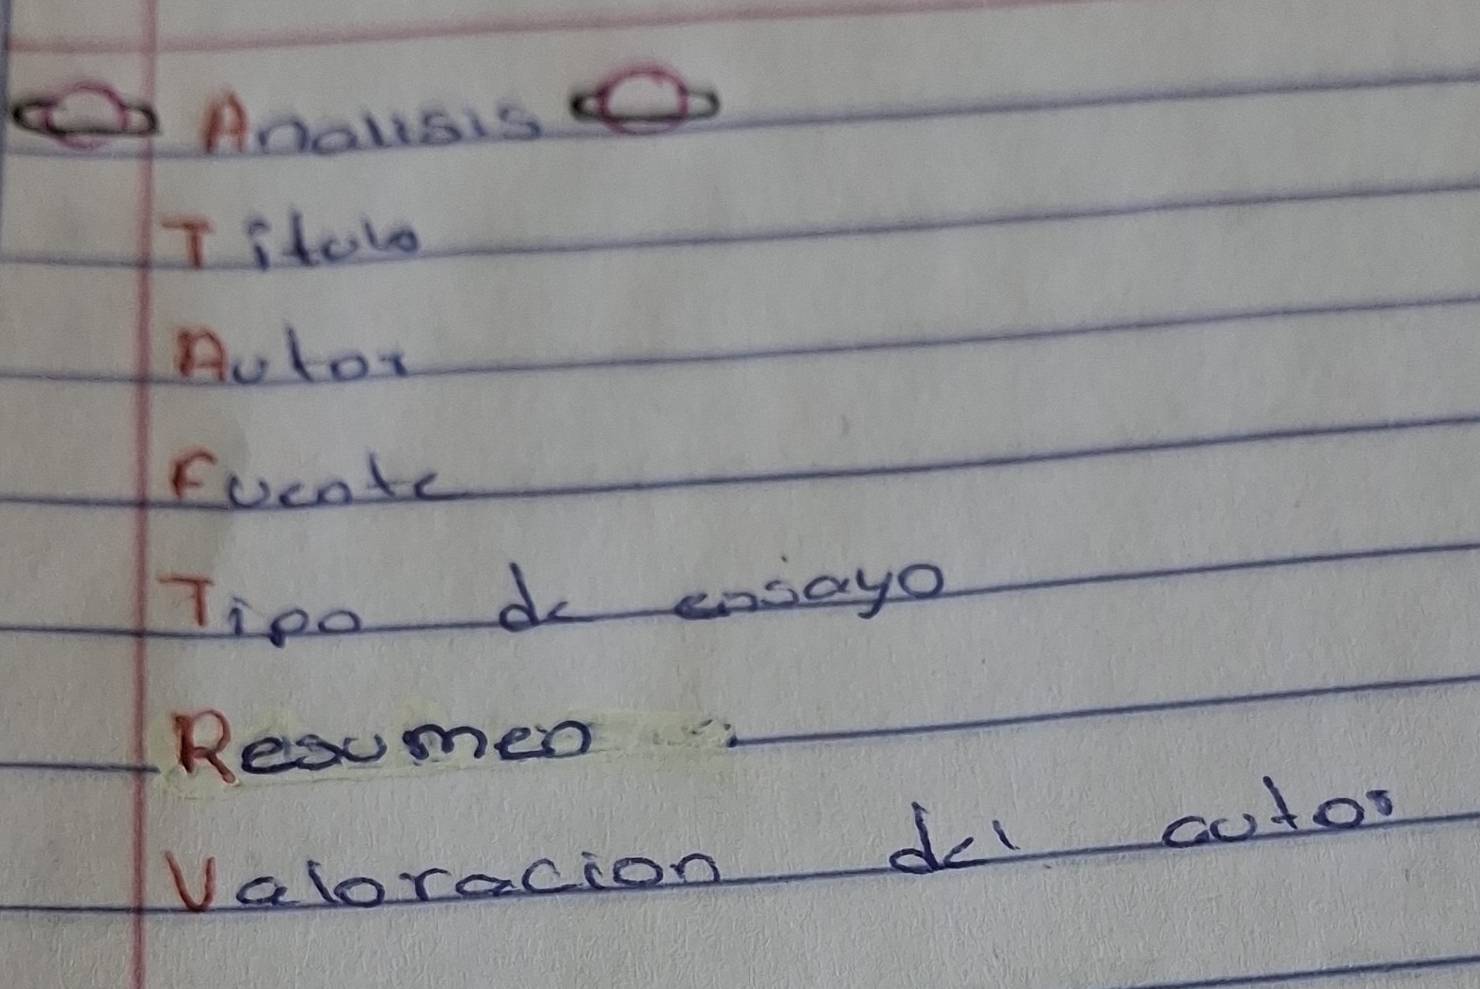 Analisis
Titulo
Autor
Fuente
Tipo de ensayo
Resumen
Valoracion del autor